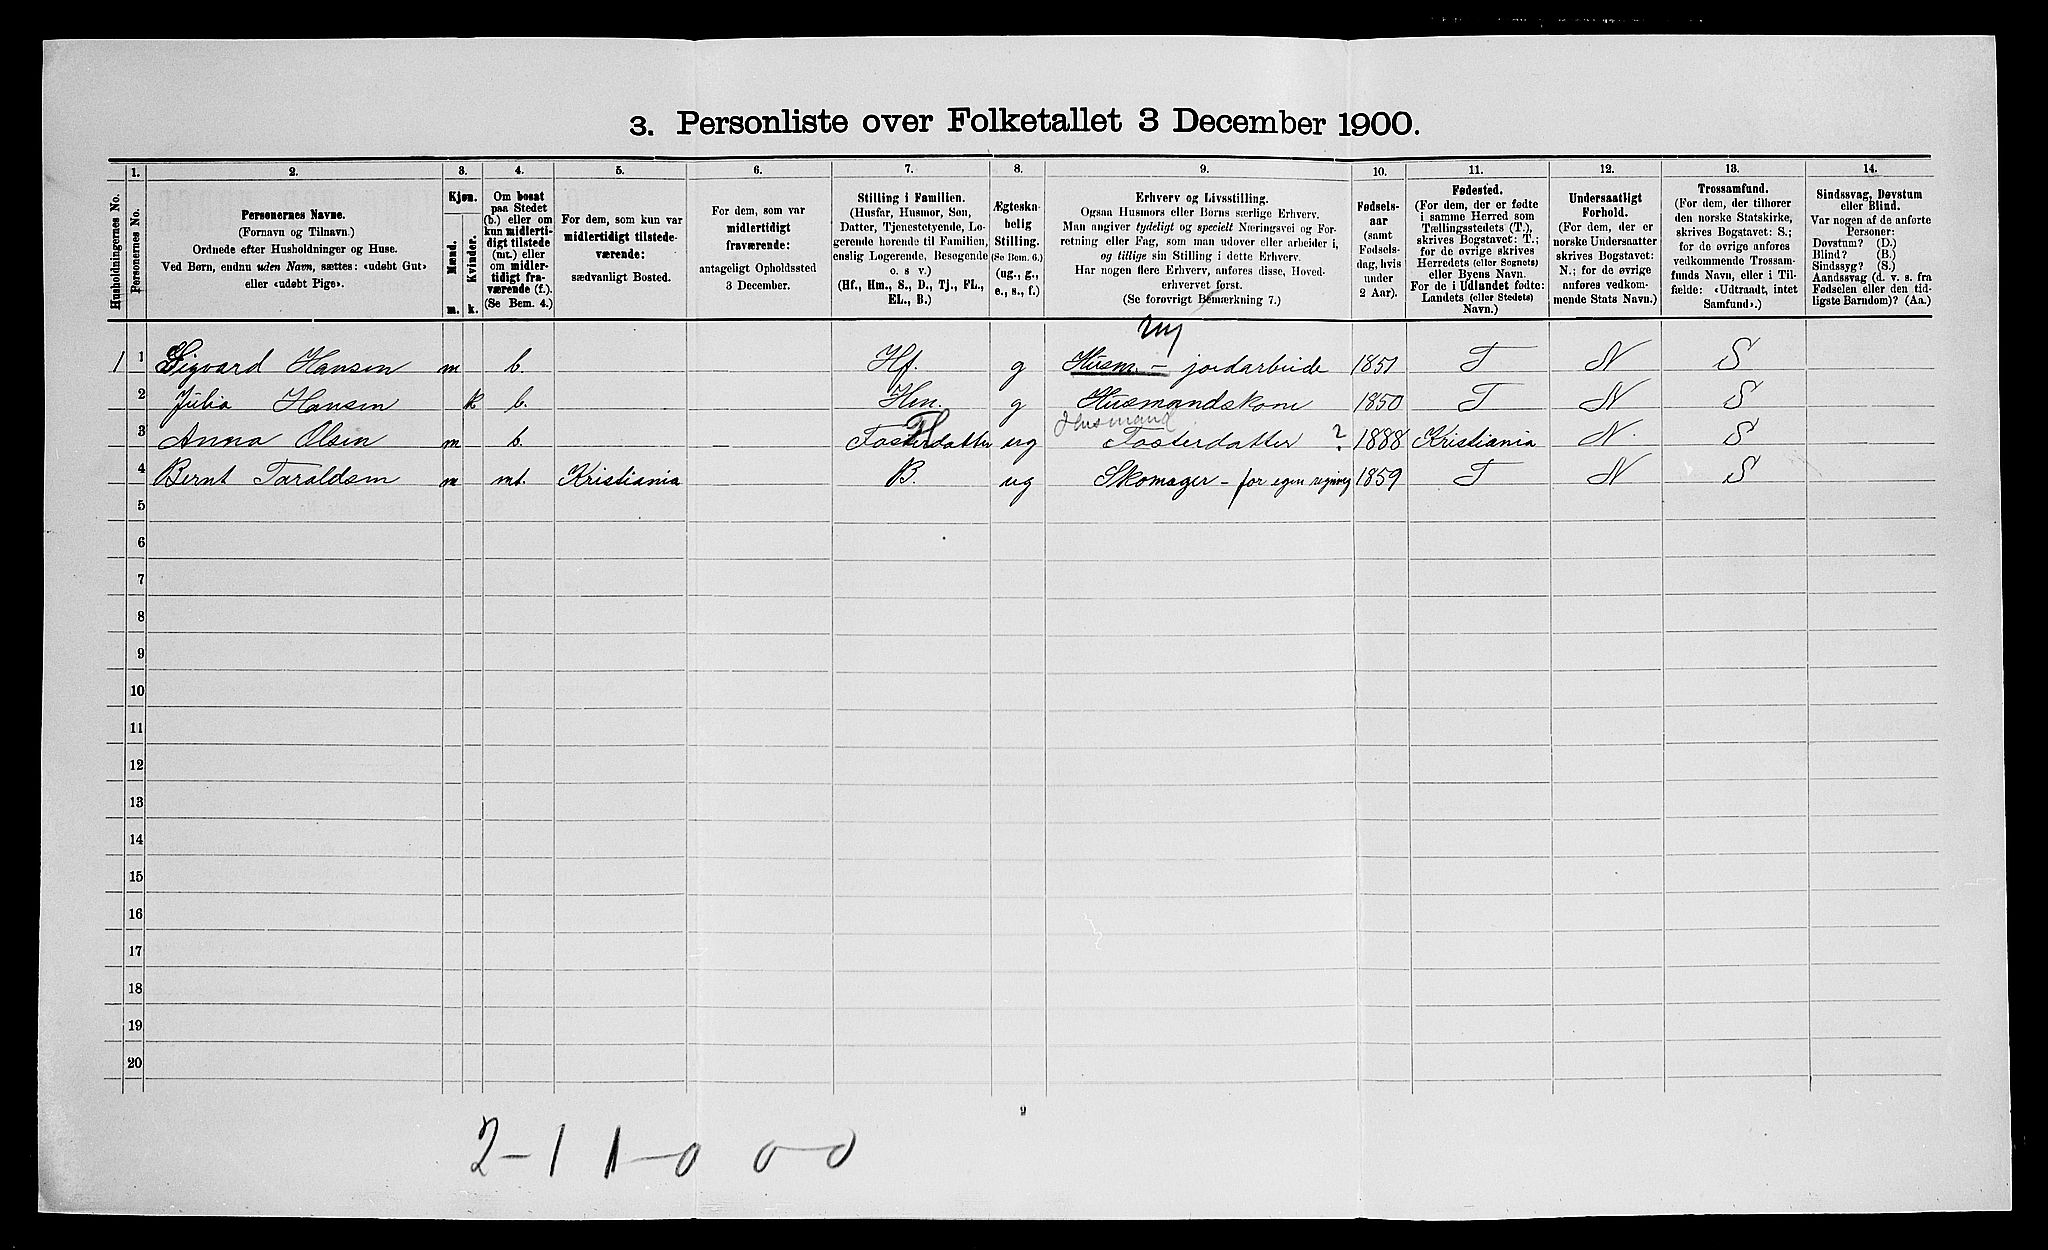 3. Personliste over Folketallet 3 December 1900.
Husholdningernes No.
1. Personernes No.
2. Personernes Navne. (Fornavn og Tilnavn.) Ordnede efter Husholdninger og Huse. Ved Børn, endnu uden Navn, sættes: «udøbt Gut» eller «udøbt Pige».
3. Kjøn. Mænd. m. Kvinder. k.
4. Om bosat paa Stedet (b.) eller om kun midlertidigt tilstede (mt.) eller om midlertidigt fraværende (f.). (Se Bem. 4.)
5. For dem, som kun var midlertidigt tilstedeværende: sædvanligt Bosted.
6. For dem, som var midlertidigt fraværende: antageligt Opholdssted 3 December.
7. Stilling i Familien. (Husfar, Husmor, Søn, Datter, Tjenestetyende, Logerende hørende til Familien, enslig Logerende, Besøgende o. s v.) (Hf., Hm., S., D., Tj., FL., EL., B.)
8. Ægteskabelig Stilling. (Se Bem. 6.) (ug., g., e., s., f.)
9. Erhverv og Livsstilling. Ogsaa Husmors eller Børns særlige Erhverv. Man angiver tydeligt og specielt Næringsvei og Forretning eller Fag, som man udøver eller arbeider i, og tillige sin Stilling i dette Erhverv. Har nogen flere Erhverv, anføres disse, Hovederhvervet først. (Se forøvrigt Bemærkning 7.)
10. Fødselsaar (samt Fødselsdag, hvis under 2 Aar).
11. Fødested. (For dem, der er fødte i samme Herred som Tællingsstedets (T.), skrives Bogstavet: T.; for de øvrige skrives Herredets (eller Sognets) eller Byens Navn. For de i Udlandet fødte: Landets (eller Stedets) Navn.)
12. Undersaatligt Forhold. (For dem, der er norske Undersaatter skrives Bogstavet: N.; for de øvrige anføres vedkommende Stats Navn.)
13. Trossamfund. (For dem, der tilhører den norske Statskirke, skrives Bogstavet: S.; for de øvrige anføres vedkommende Trossamfunds Navn, eller i Tilfælde: «Udtraadt, intet Samfund».)
14. Sindssvag, Døvstum eller Blind. Var nogen af de anførte Personer: Døvstum? (D.) Blind? (B.) Sindssyg? (S.) Aandssvag (d. v. s. fra Fødselen eller den tidligste Barndom)? (Aa.)
1 1 Sigvard Hansen m b. Hf. g Husm. – jordarbeide 1851 T N S
2 Julia Hansen k b. Hm. g Husmandskone 1850 T N S
Husmand
3 Anna Olsen m b. Fosterdatter Fl ug Fosterdatter ? 1888 Kristiania N. S
4 Bernt Taraldsen m mt. Kristiania B. ug Skomager – for egen regning 1859 T N S
5
6
7
8
9
10
11
12
13
14
15
16
17
18
19
20
2
2–1 1–0 0–0